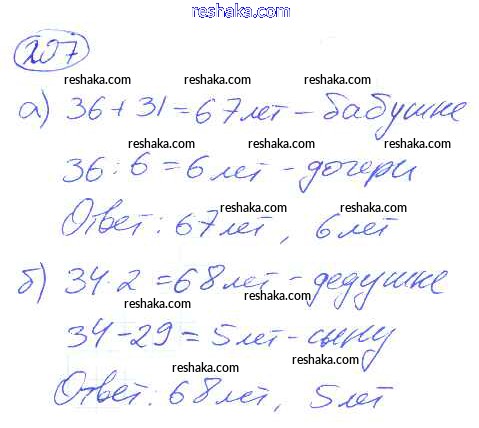 reshaka.com
207
reshaka.com reshaka.com reshaka.com
а) 36 + 31 = 67 лет – бабушке
reshaka.com reshaka.com reshaka.com
36 : 6 = 6 лет – дочери
reshaka.com reshaka.com
Ответ: 67 лет, 6 лет
reshaka.com reshaka.com
б) 34 · 2 = 68 лет – дедушке
reshaka.com reshaka.com
34 – 29 = 5 лет – сыну
reshaka.com reshaka.com
Ответ: 68 лет, 5 лет
reshaka.com